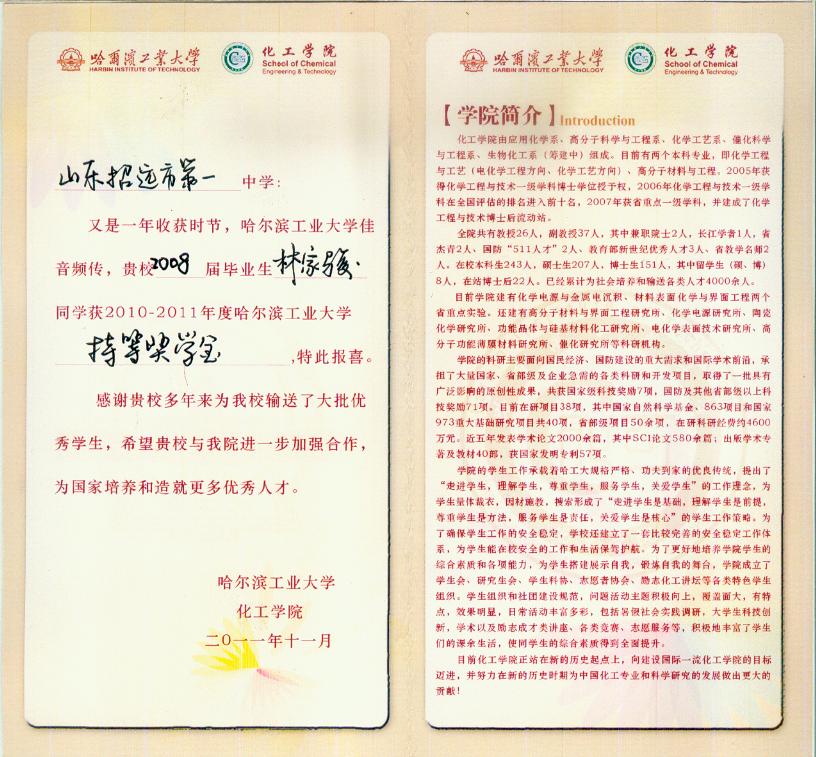 哈尔滨工业大学
HARBIN INSTITUTE OF TECHNOLOGY
化工学院
School of Chemical
Engineering & Technology
山东招远市第一中学：
又是一年收获时节，哈尔滨工业大学佳
音频传，贵校2008届毕业生林家骏
同学获2010-2011年度哈尔滨工业大学
特等奖学金，特此报喜。
感谢贵校多年来为我校输送了大批优
秀学生，希望贵校与我院进一步加强合作，
为国家培养和造就更多优秀人才。
哈尔滨工业大学
化工学院
二〇一一年十一月
哈尔滨工业大学
HARBIN INSTITUTE OF TECHNOLOGY
化工学院
School of Chemical
Engineering & Technology
【学院简介】Introduction
化工学院由应用化学系、高分子科学与工程系、化学工艺系、催化科学
与工程系、生物化工系（筹建中）组成。目前有两个本科专业，即化学工程
与工艺（电化学工程方向、化学工艺方向）、高分子材料与工程。2005年获
得化学工程与技术一级学科博士学位授予权，2006年化学工程与技术一级学
科在全国评估的排名进入前十名，2007年获省重点一级学科，并建成了化学
工程与技术博士后流动站。
全院共有教授26人，副教授37人，其中兼职院士2人，长江学者1人，省
杰青2人、国防“511人才”2人、教育部新世纪优秀人才3人、省教学名师2
人。在校本科生243人，硕士生207人，博士生151人，其中留学生（硕、博）
8人，在站博士后22人。已经累计为社会培养和输送各类人才4000余人。
目前学院建有化学电源与金属电沉积、材料表面化学与界面工程两个
省重点实验。还建有高分子材料与界面工程研究所、化学电源研究所、陶瓷
化学研究所、功能晶体与硅基材料化工研究所、电化学表面技术研究所、高
分子功能薄膜材料研究所、催化研究所等科研机构。
学院的科研主要面向国民经济、国防建设的重大需求和国际学术前沿，承
担了大量国家、省部级及企业急需的各类科研和开发项目，取得了一批具有
广泛影响的原创性成果，共获国家级科技奖励7项，国防及其他省部级以上科
技奖励71项。目前在研项目38项，其中国家自然科学基金、863项目和国家
973重大基础研究项目共40项，省部级项目50余项，在研科研经费约4600
万元。近五年发表学术论文2000余篇，其中SCI论文580余篇；出版学术专
著及教材40部，获国家发明专利57项。
学院的学生工作承载着哈工大规格严格、功夫到家的优良传统，提出了
“走进学生，理解学生，尊重学生，服务学生，关爱学生”的工作理念，为
学生量体裁衣，因材施教，搜索形成了“走进学生是基础，理解学生是前提，
尊重学生是方法，服务学生是责任，关爱学生是核心”的学生工作策略。为
了确保学生工作的安全稳定，学校还建立了一套比较完善的安全稳定工作体
系，为学生能在校安全的工作和生活保驾护航。为了更好地培养学院学生的
综合素质和各项能力，为学生搭建展示自我，锻炼自我的舞台，学院成立了
学生会、研究生会、学生科协、志愿者协会、励志化工讲坛等各类特色学生
组织。学生组织和社团建设规范，问题活动主题积极向上，覆盖面大，有特
点，效果明显，日常活动丰富多彩，包括暑假社会实践调研，大学生科技创
新，学术以及励志成才类讲座、各类竞赛、志愿服务等，积极地丰富了学生
们的课余生活，使同学生的综合素质得到全面提升。
目前化工学院正站在新的历史起点上，向建设国际一流化工学院的目标
迈进，并努力在新的历史时期为中国化工专业和科学研究的发展做出更大的
贡献！